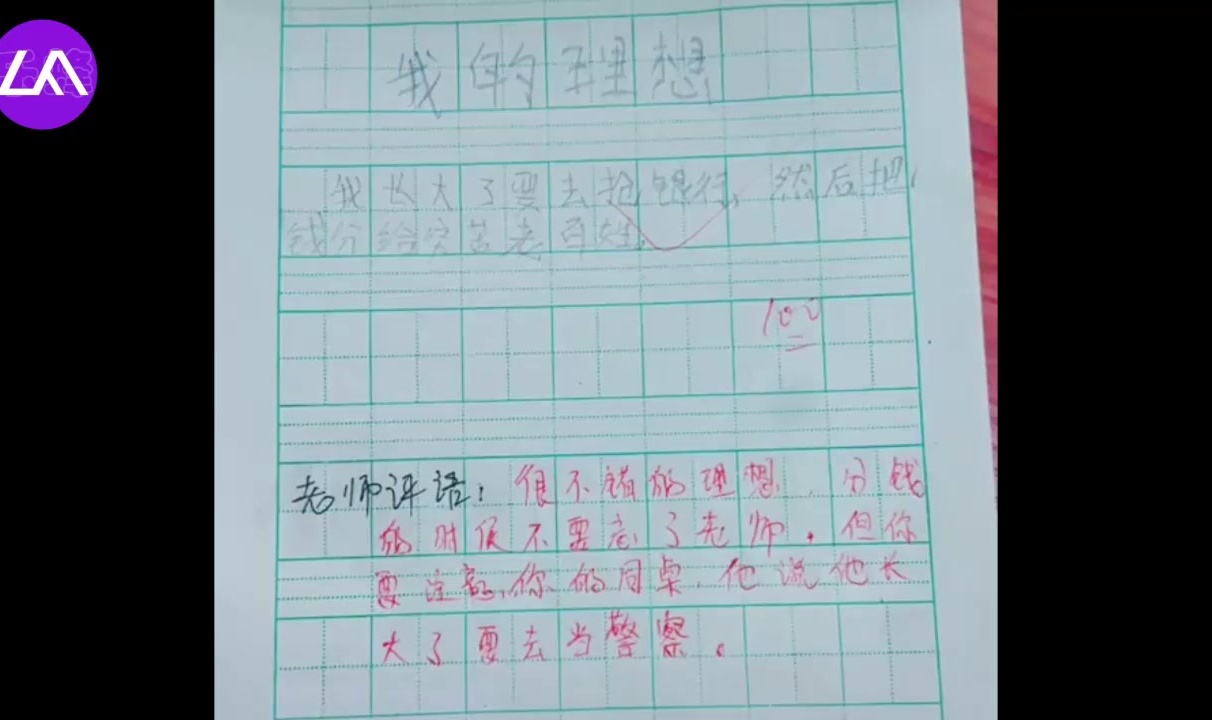 LA
我的理想
我长大了要去抢银行,然后把
钱分给穷苦老百姓。
100
老师评语:很不错的理想,分钱
的时候不要忘了老师。但你
要注意你的同桌,他说他长
大了要去当警察。